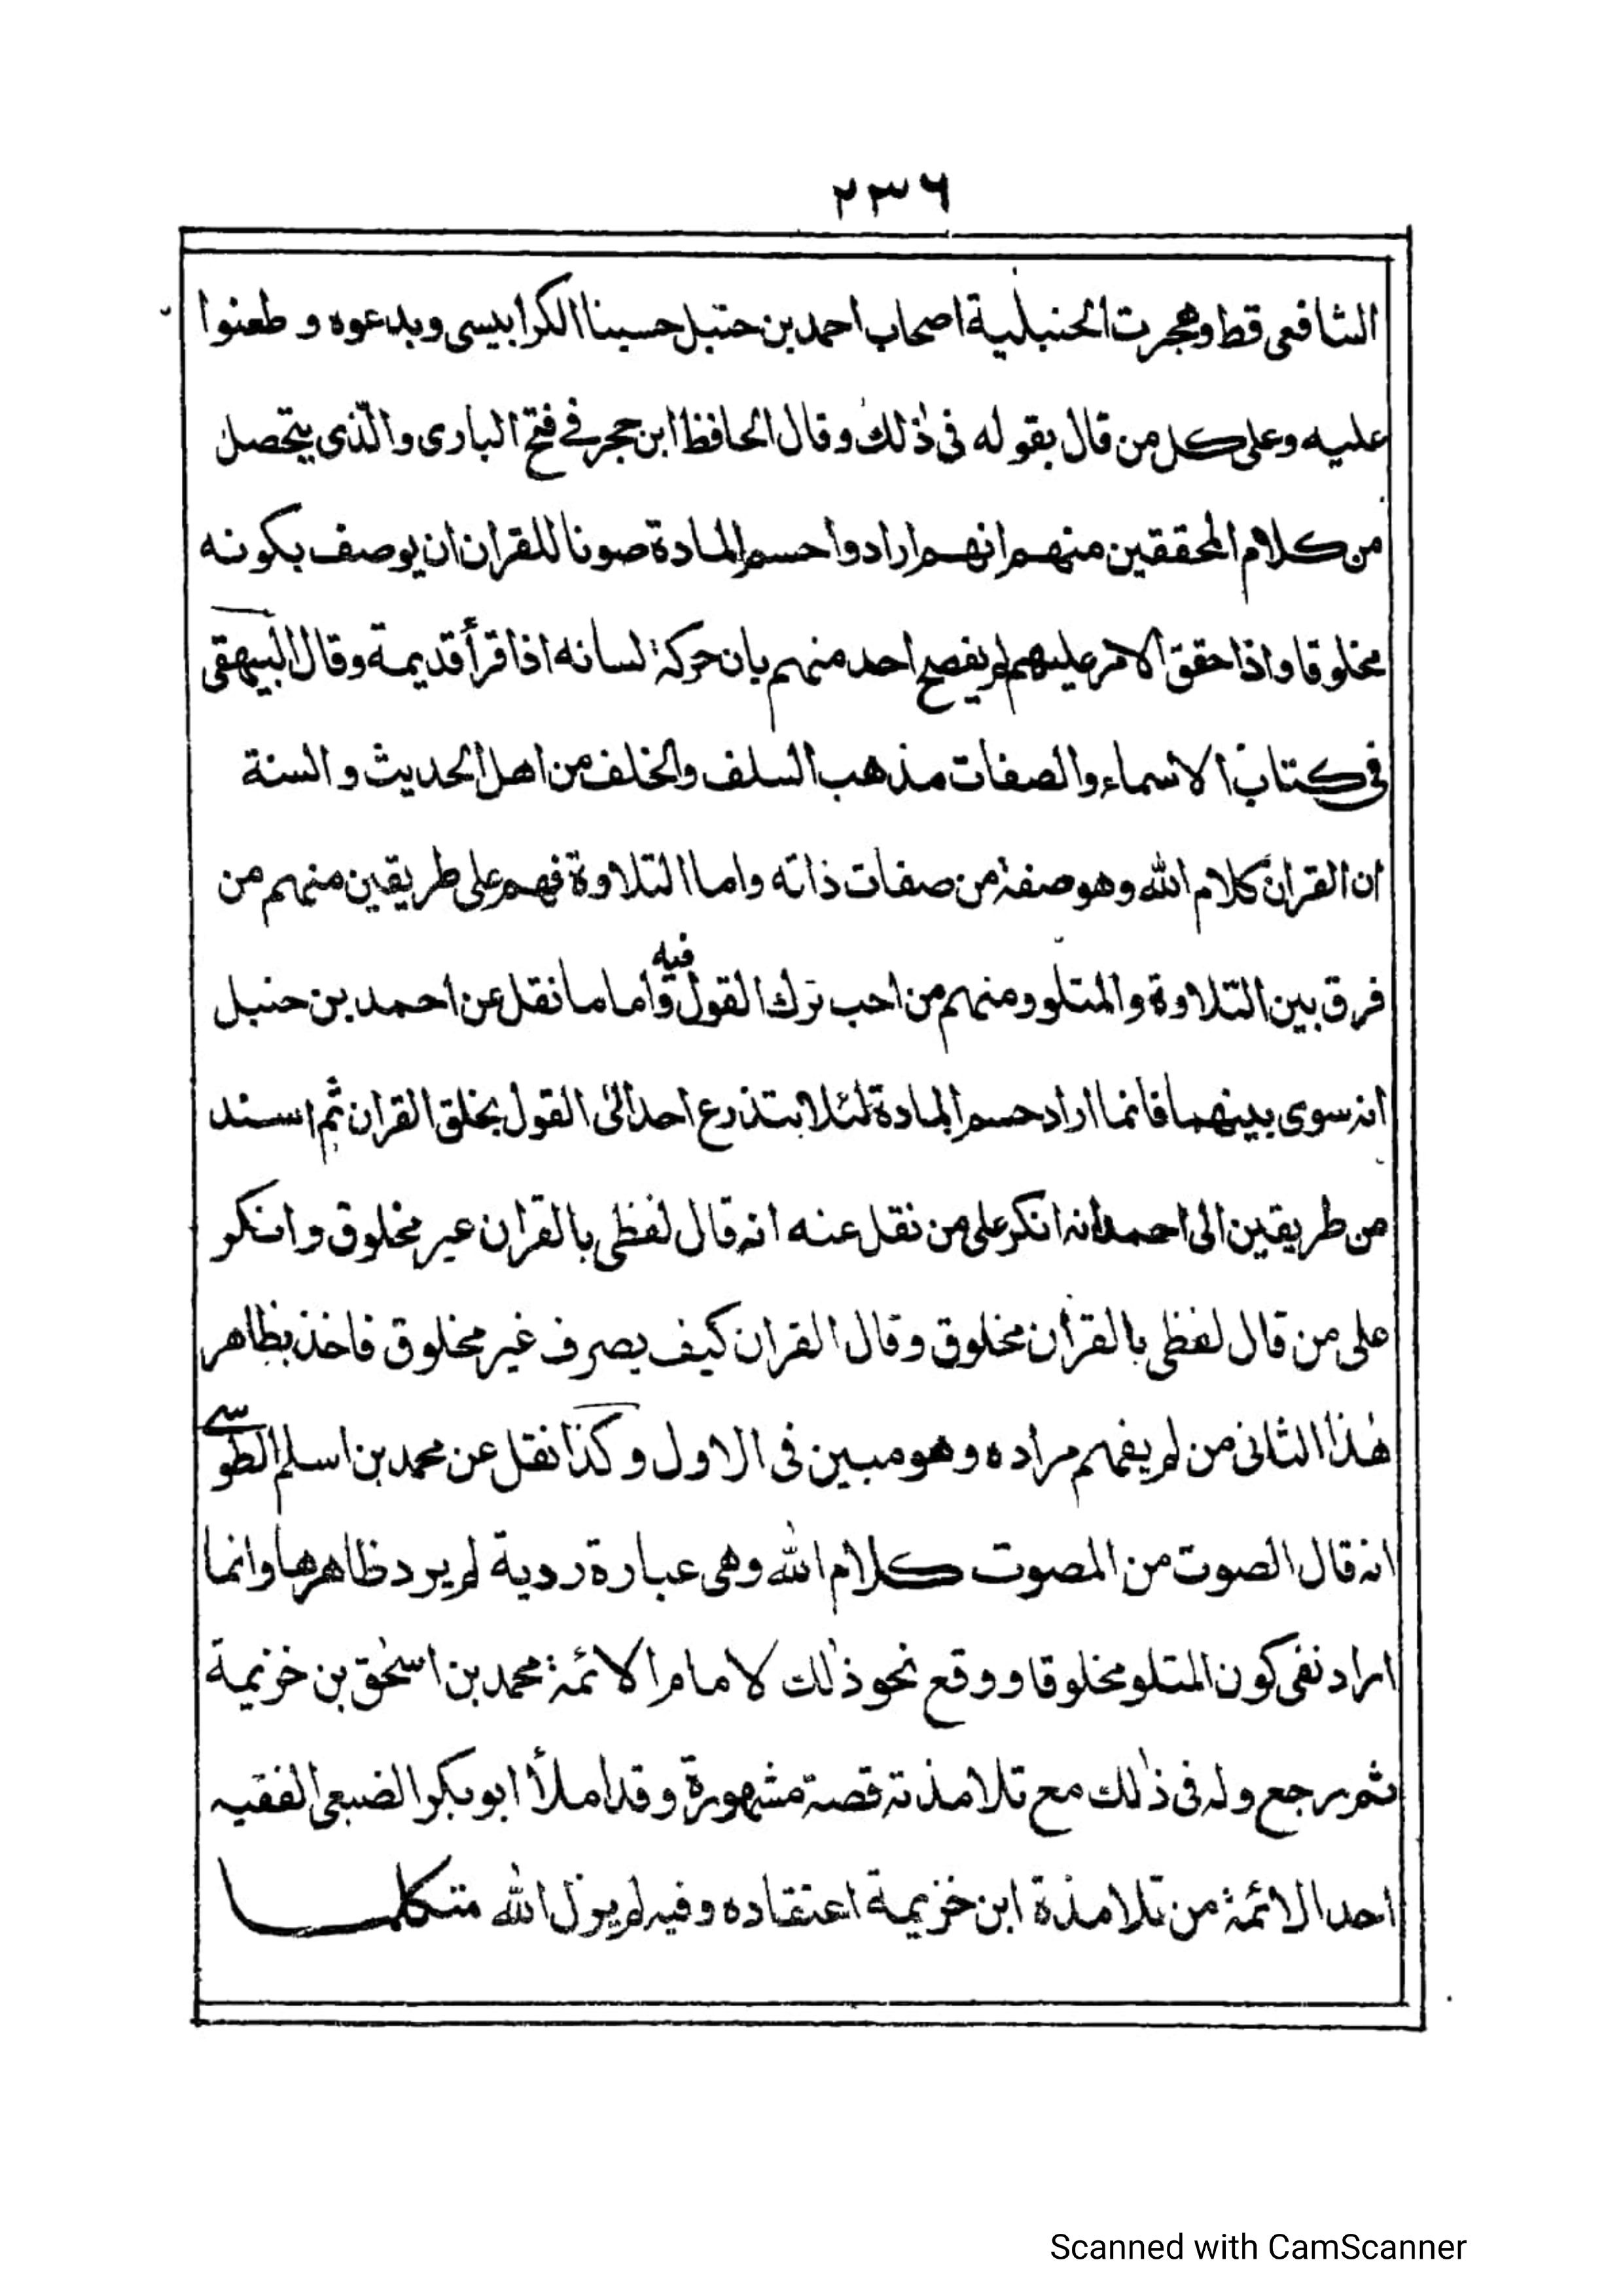 ٢٣٦
الشافعى قط وهجرت الحنبلية اصحاب احمد بن حنبل حسينا الكرابيسى وبدعوه و طعنوا
عليه وعلى كل من قال بقوله فى ذٰلك وقال الحافظ ابن حجر فى فتح البارى والّذى يتحصل
من كلام المحققين منهم انهم ارادوا حسم المادة صونا للقران ان يوصف بكونه
مخلوقا واذا حقق الامر عليهم لم يفصح احد منهم بان حركة لسانه اذا قرأ قديمة وقال البيهقى
فى كتاب الاسماء والصفات مذهب السلف والخلف من اهل الحديث و السنة
ان القران كلام الله وهو صفة من صفات ذاته واما التلاوة فهم على طريقين منهم من
فرق بين التلاوة والمتلو ومنهم من احب ترك القول فيه واما ما نقل عن احمد بن حنبل
انه سوى بينهما فانما اراد حسم المادة لئلا يتذرع احد الى القول بخلق القران ثم اسند
من طريقين الى احمد انه انكر على من نقل عنه انه قال لفظى بالقران غير مخلوق وانكر
على من قال لفظى بالقران مخلوق وقال القران كيف يصرف غير مخلوق فاخذ بظاهر
هٰذا الثانى من لم يفهم مراده وهو مبين فى الاول وكذا نقل عن محمد بن اسلم الطوسے
انه قال الصوت من المصوت كلام الله وهى عبارة ردية لم يرد ظاهرها وانما
اراد نفى كون المتلو مخلوقا ووقع نحو ذٰلك لامام الائمة محمد بن اسحٰق بن خزيمة
ثم رجع وله فى ذٰلك مع تلامذته قصة مشهورة وقد املأ ابو بكر الضبعى الفقيه
احد الائمة من تلامذة ابن خزيمة اعتقاده وفيه لم يزل الله متكلما
Scanned with CamScanner